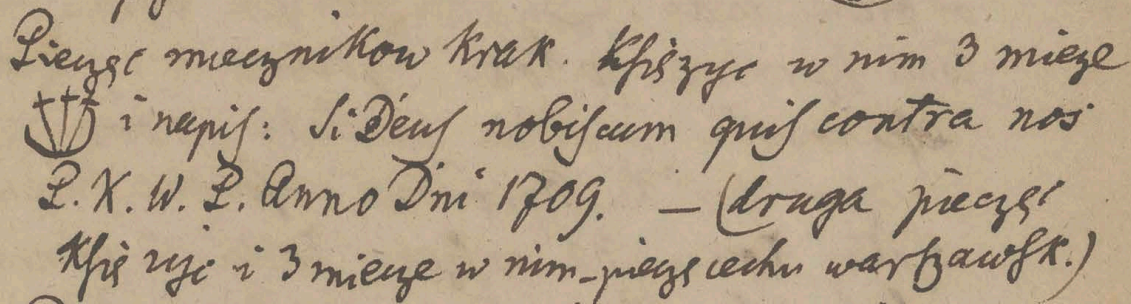 Pieczęć mieczników Krak. Księżyc w nim 3 miecze
i napis: Si Deus nobiscum quis contra nos
P. K. W. P. Anno Dni 1709. — (druga pieczęć
Księżyc i 3 miecze w nim - piecz cechu warszawsk.)